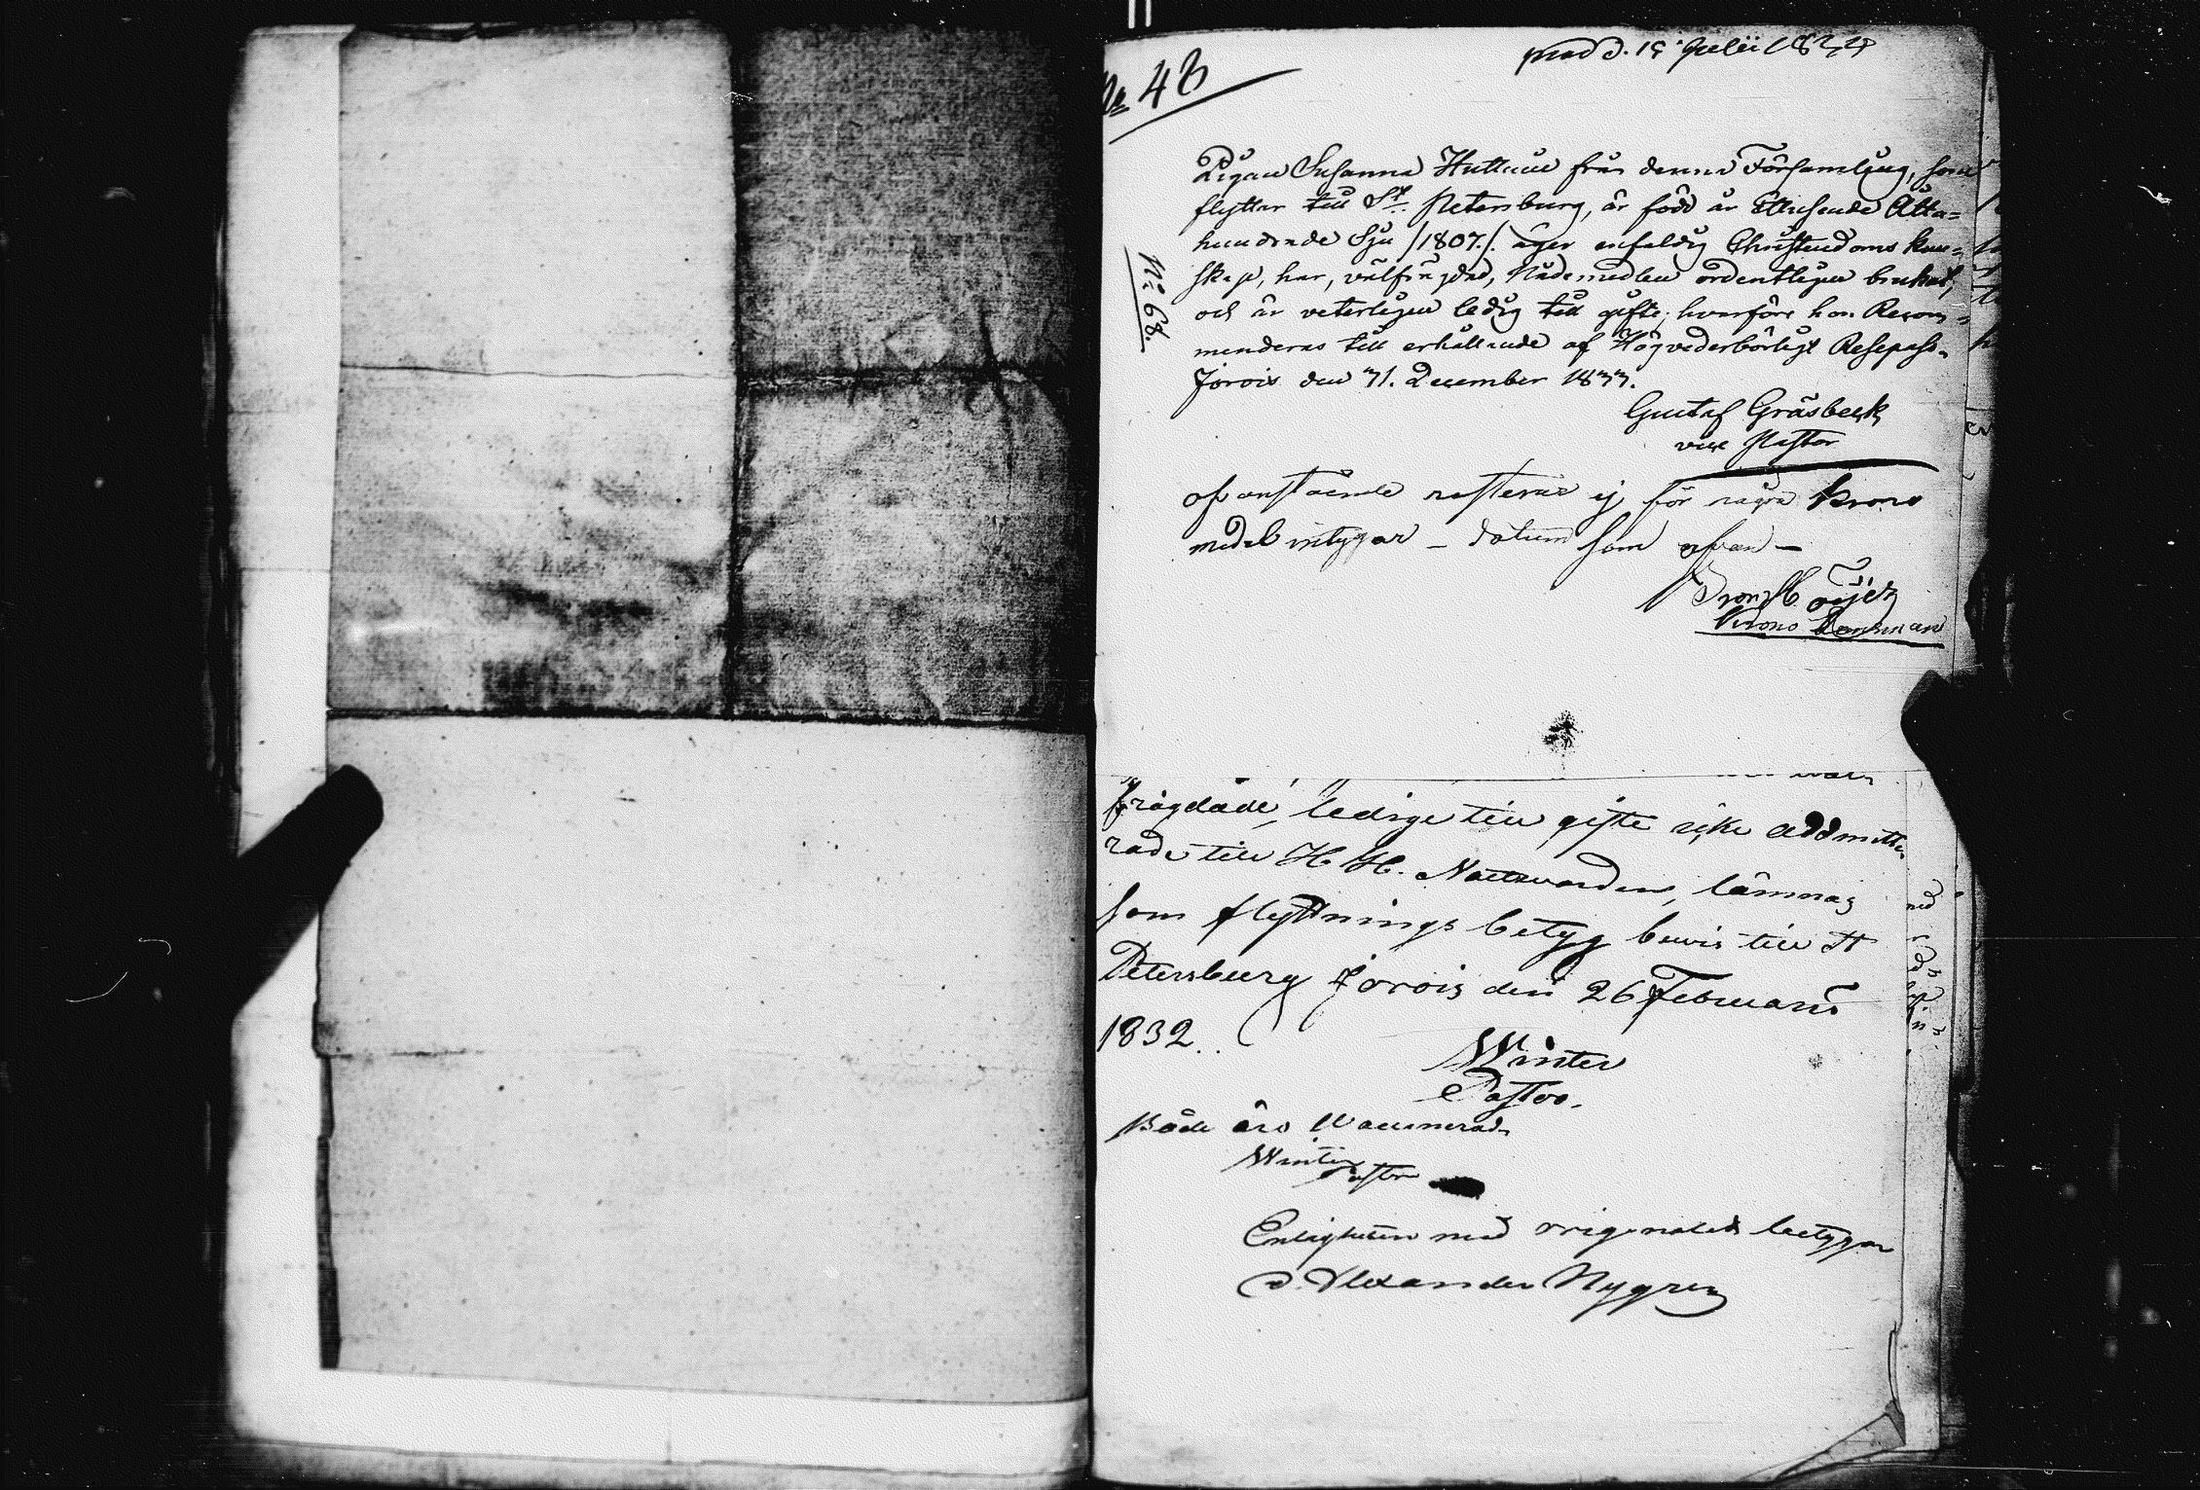 No 48
prod d. 15 Julii 1834
Pigan Susanna Huttuin från denna Församling, som
flyttar till St. Petersburg, är född år Ettusende Åtta=
hundrade Sju /1807./ äger enfaldig Christendoms kun=
skap, har, välfräjdad, Nådemedlen ordentligen brukat,
och är veterligen ledig till gifte; hvarföre hon Recom=
menderas till erhållande af Högvederbörligt Resepass.
Jorois den 31. December 1833.
Gustaf Gråsbeck
vice Pastor
No 68.
ofvanstående resterar ej för några krono
medel intygar _ datum som ofvan _
Krono Länsman
frägdade, ledige till gifte icke admitte
rade till H. H. Nattvarden, lämnas
som flyttnings betyg bevis till St
Petersburg Jorois den 26 Februarii
1832.
Winter
Pastor.
Både äro Vaccinerade
Winter
Pastor
Enligheten med originalet betygar
Alexander Nygren